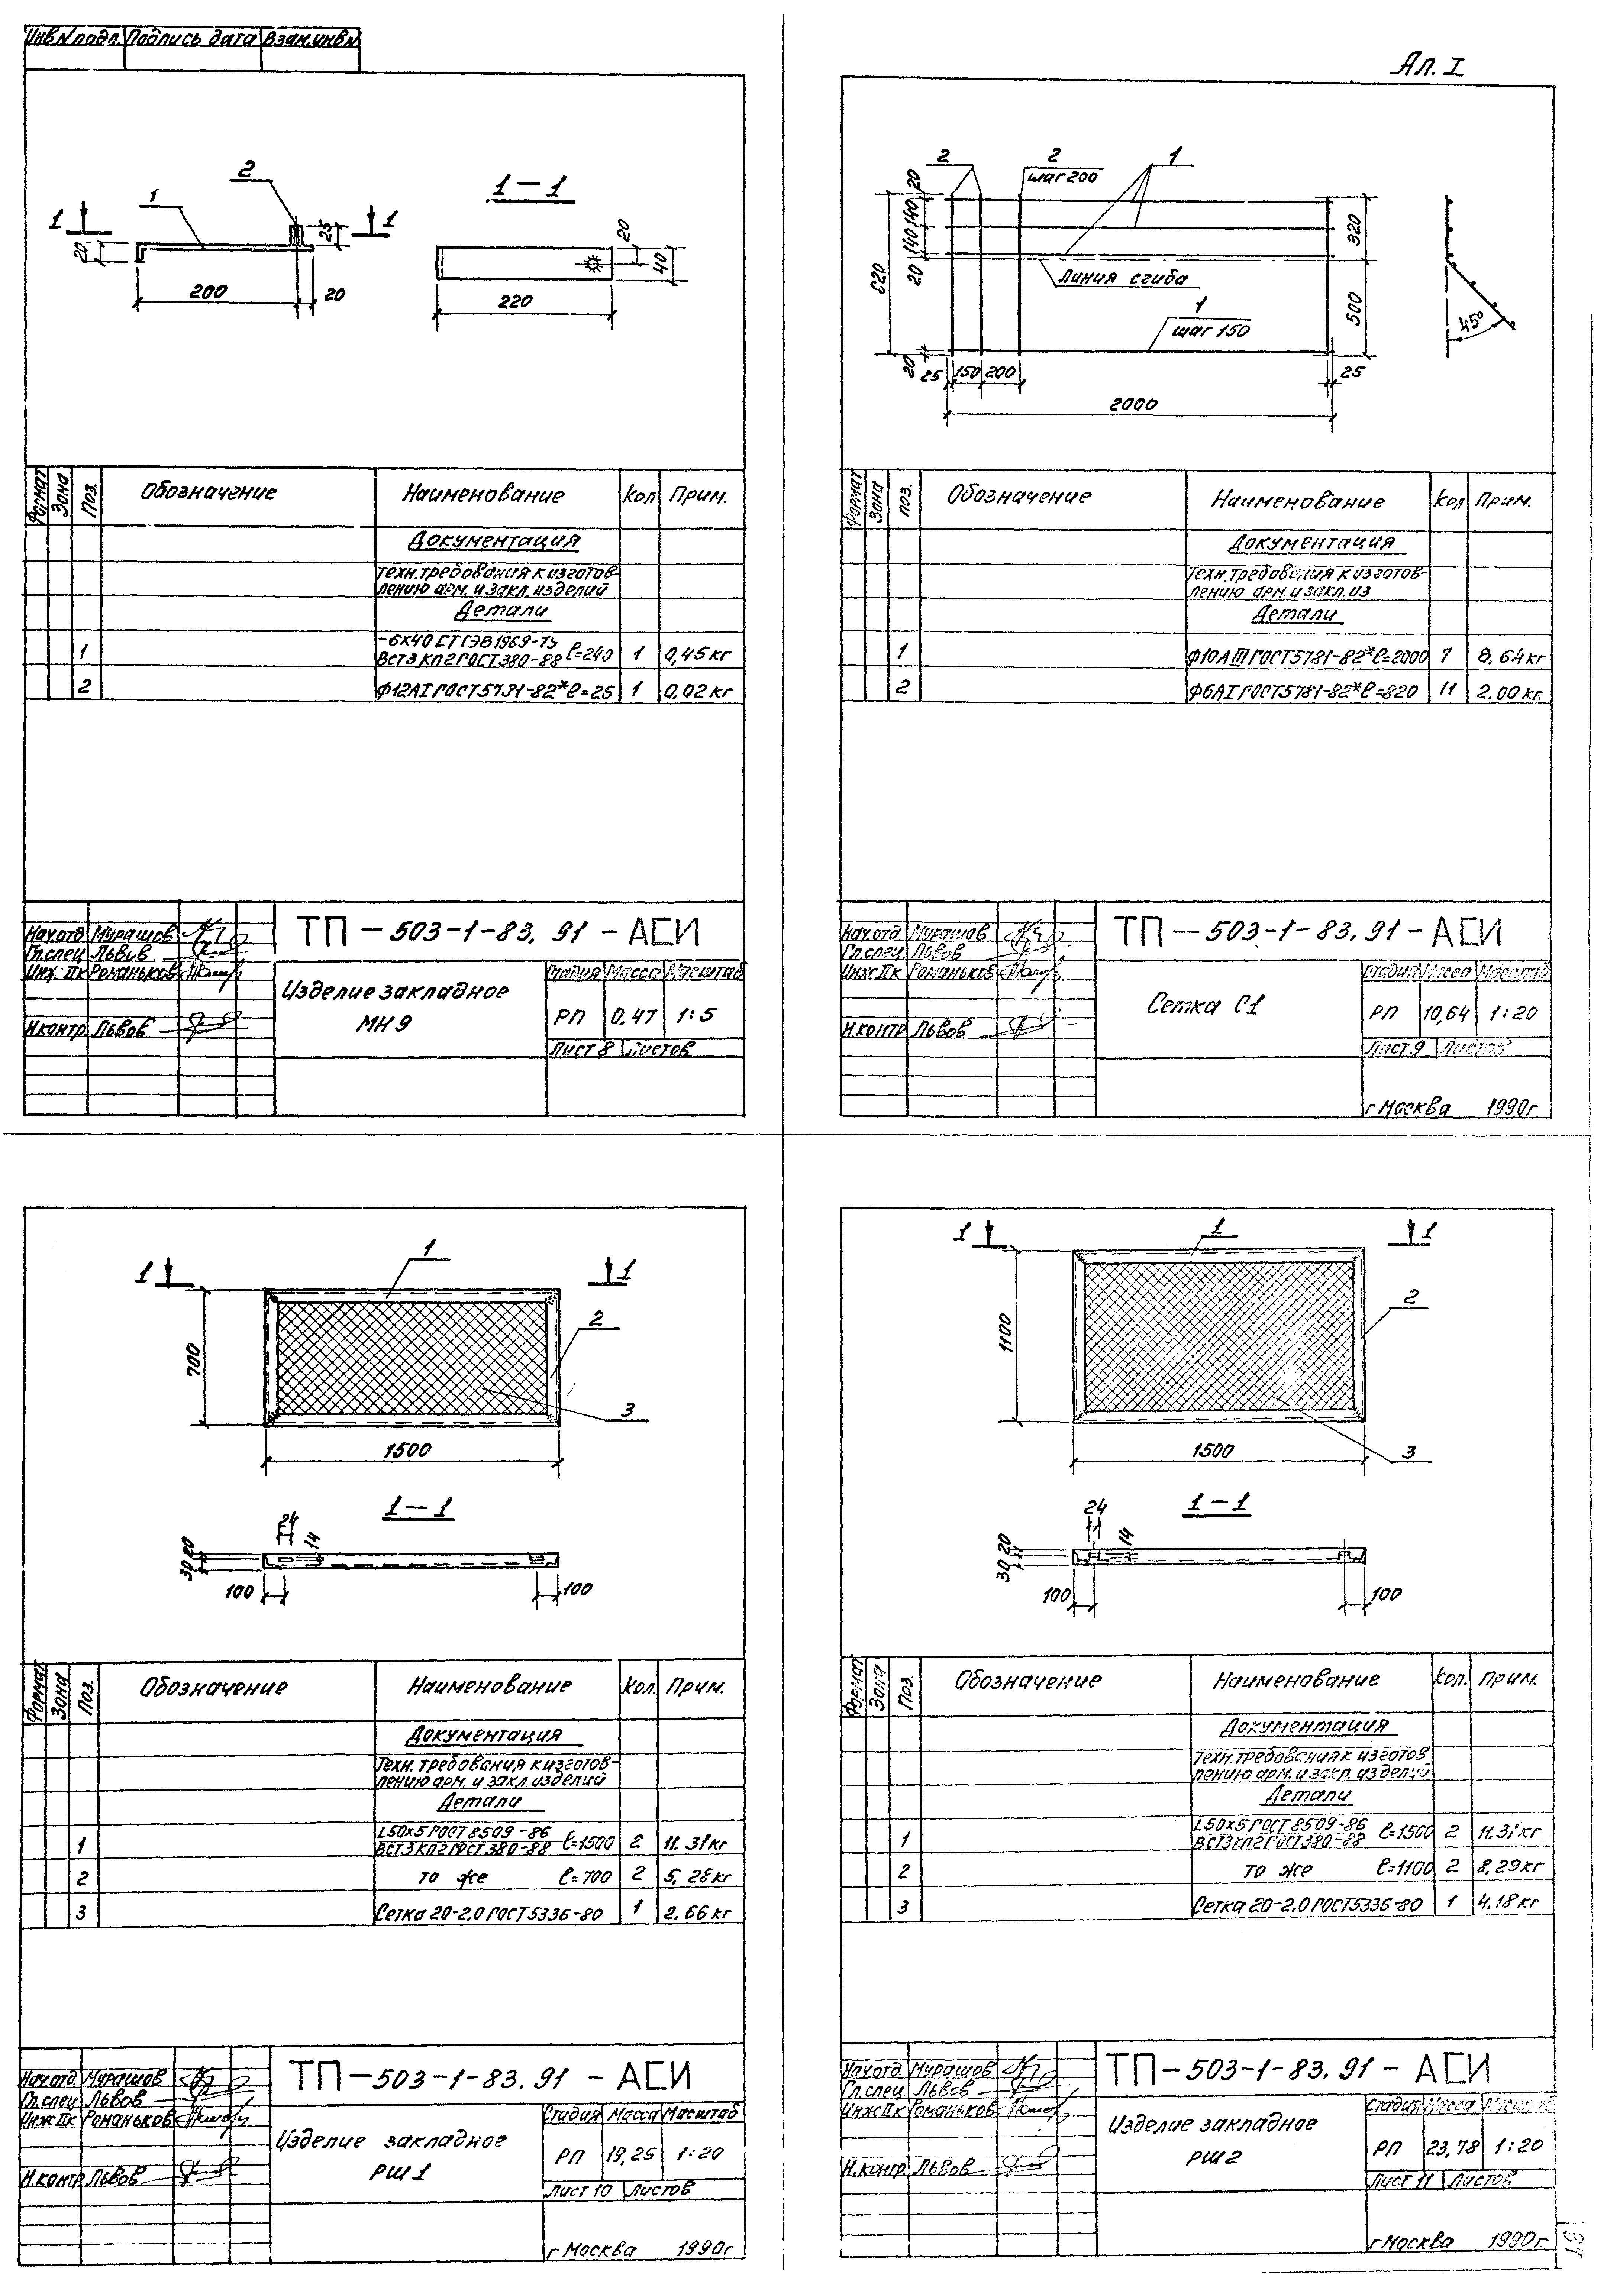 Инв N подл. Подпись дата Взам.инв N
2
1
1
1
1-1
20
25
200
20
20
40
220
Формат Зона Поз. Обозначение Наименование Кол Прим.
Документация
Техн.требования к изготов-
лению арм. и закл. изделий
Детали
1 -6х40 СТ ГЭВ 1969-79
ВСт3 КП2 ГОСТ 380-88 ℓ=240 1 0,45 кг
2 Ф12АI ГОСТ 5781-82* ℓ=25 1 0,02 кг
ТП-503-1-83.91-АСИ
Нач.отд Мурашов
Гл.спец Львов
Инж. IIк Романьков
Н.контр Львов
Изделие закладное
МН 9
Стадия Масса Масштаб
РП 0,47 1:5
Лист 8 Листов
Ал. I
2
2
шаг 200
1
20
140
140
20
620
20
Линия сгиба
1
шаг 150
320
500
45°
25 150 200
25
2000
Формат Зона поз. Обозначение Наименование Кол Прим.
Документация
Техн.требования к изготов-
лению арм. и закл.из
Детали
1 Ф10АIII ГОСТ 5781-82* ℓ=2000 7 8,64 кг
2 Ф6АI ГОСТ 5781-82* ℓ=820 11 2.00 кг
ТП-503-1-83.91-АСИ
Нач.отд. Мурашов
Гл.спец Львов
Инж IIк Романьков
Н.контр Львов
Сетка С1
Стадия Масса Масштаб
РП 10,64 1:20
Лист 9 Листов
г Москва 1990г
1
1
1
2
3
700
1500
1-1
24
14
20
30
100
100
Формат Зона Поз. Обозначение Наименование Кол. Прим.
Документация
Техн. требования к изготов-
лению арм. и закл. изделий
Детали
1 L50х5 ГОСТ 8509-86
ВСт3 КП2 ГОСТ 380-88 ℓ=1500 2 11.31 кг
2 то же ℓ=700 2 5,28 кг
3 Сетка 20-2.0 ГОСТ 5336-80 1 2.66 кг
ТП-503-1-83.91-АСИ
Нач.отд. Мурашов
Гл.спец Львов
Инж IIк Романьков
Н.контр Львов
Изделие закладное
РШ 1
Стадия Масса Масштаб
РП 19,25 1:20
Лист 10 Листов
г Москва 1990г
1
1
1
2
3
1100
1500
1-1
24
14
20
30
100
100
Формат Зона Поз. Обозначение Наименование Кол. Прим.
Документация
Техн.требования к изготов
лению арм. и закл. изделий
Детали
1 L50х5 ГОСТ 8509-86
ВСт3 КП2 ГОСТ 380-88 ℓ=1500 2 11.31 кг
2 то же ℓ=1100 2 8,29 кг
3 Сетка 20-2.0 ГОСТ 5336-80 1 4.18 кг
ТП-503-1-83.91-АСИ
Нач.отд. Мурашов
Гл.спец Львов
Инж IIк Романьков
Н.контр Львов
Изделие закладное
РШ 2
Стадия Масса
РП 23,78 1:20
Лист 11 Листов
г Москва 1990г.